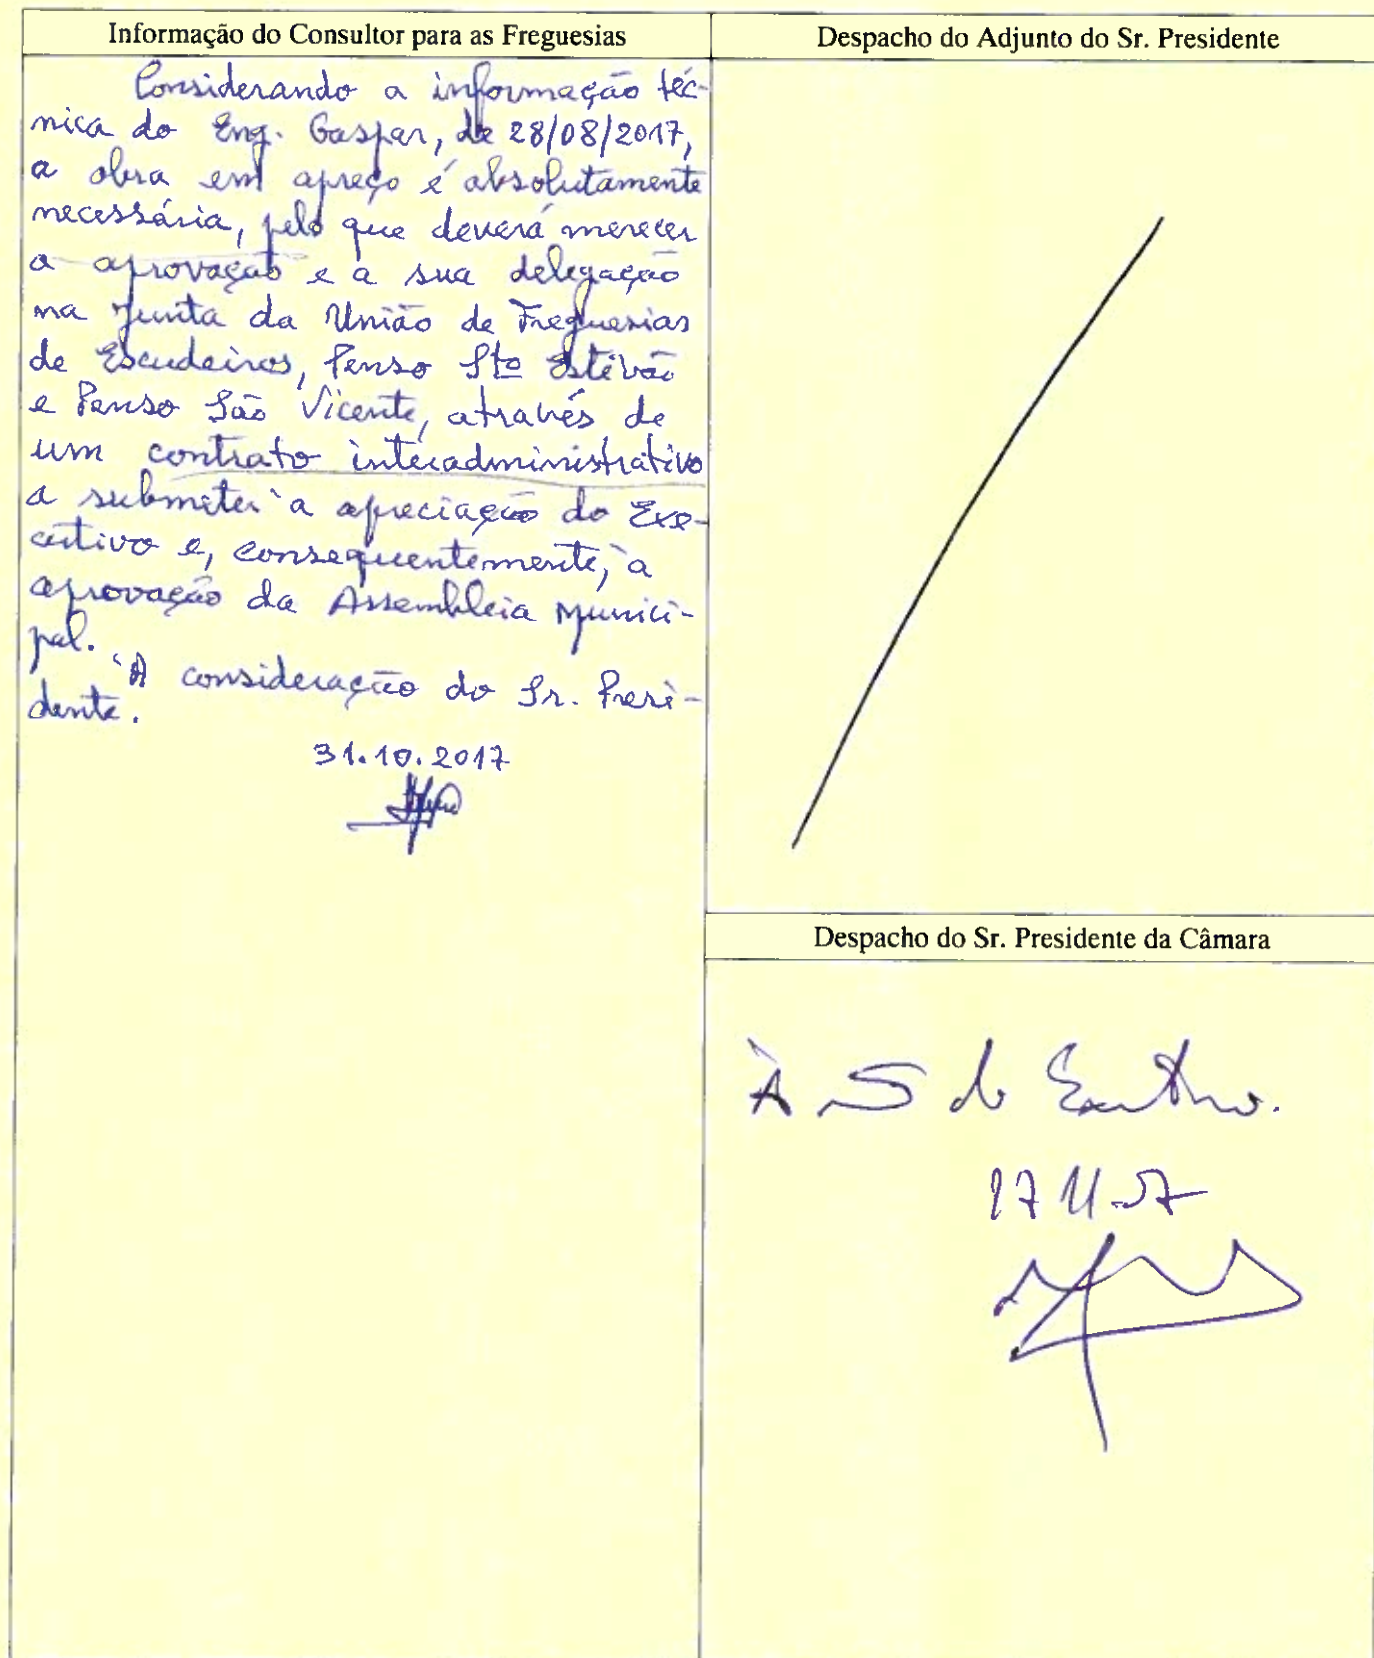 Informação do Consultor para as Freguesias
Considerando a informação téc-
nica do Eng. Gaspar, de 28/08/2017,
a obra em apreço é absolutamente
necessária, pelo que deverá merecer
a aprovação e a sua delegação
na Junta da União de Freguesias
de Escudeiros, Penso Sto Estêvão
e Penso São Vicente, através de
um contrato interadministrativo
a submeter à apreciação do Exe-
cutivo e, consequentemente, à
aprovação da Assembleia Munici-
pal.
À consideração do Sr. Presi-
dente.
31.10.2017
Despacho do Adjunto do Sr. Presidente
Despacho do Sr. Presidente da Câmara
À